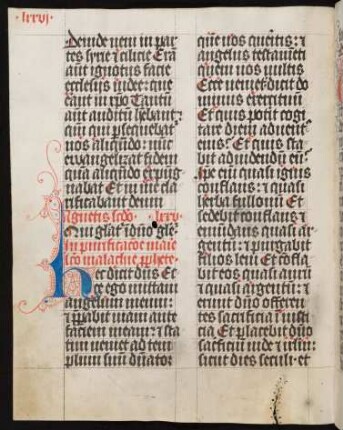 ·lxxvj·
deinde veni in par
tes syrie et cilicie Erã
aut ignotus facie
ecclesijs iudee: que
erant in xpo Tantũ
aut auditũ habebant:
qm̃ qui psequebat̃
nos aliqñdo: nũc
evangelizat fidem
quã aliqñdo expug
nabat Et in me cla
rificabant deum
·lxxv·
Qui gliat̃ ĩ dño glie
In purificacoe marie
lco malachie pphete
Hec dicit dñs Et
ce ego mittam
angelum meum:
et pparabit viam ante
faciem meam: et sta
tim veniet ad tem
plum suum dñator
quẽ vos queritis: et
angelus testamẽti
quem vos vultis
Ecce venit dicit do
minus exercituũ
Et quis potit cogi
tare diem aduent
eius: Et quis sta
bit ad videndũ eũ:
Ipe em̃ quasi ignis
conflans: et quasi
herba fullonũ Et
sedebit conflans et
emũdans quasi ar
gentũ: et purgabit
filios leui Et cola
bit eos quasi aurũ
et quasi argentũ: et
erunt dño offeren
tes sacrificia ĩ iusti
cia Et placebit dño
sacficiũ iude et irlm̃
sicut dies seculi: et